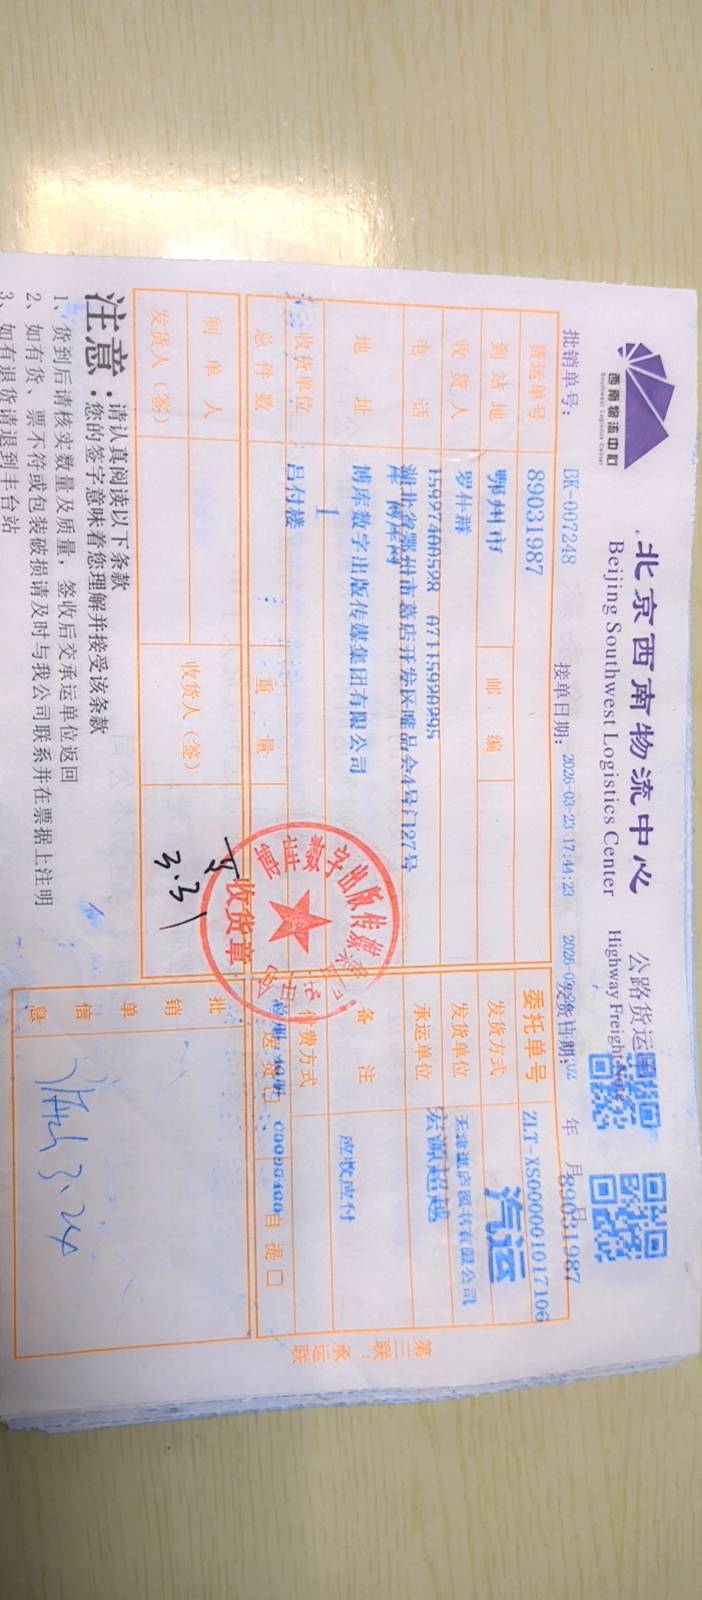 西南物流中心
Southwest Logistics Center
北京西南物流中心
Beijing Southwest Logistics Center
公路货运
Highway Freight
批销单号: BK-007248
接单日期: 2026-03-23 17:44:23
发货日期:
年 月
89031987
货运单号 89031987
委托单号 ZLT-XS000001017106
到站地 鄂州市
邮 编
发货方式 汽运
收 货 人
发货单位
电 话
承运单位 宏源超越
地 址 湖北省鄂州市葛店开发区唯品会4号门127号
库 博库网
备 注 应收应付
收货单位 博库数字出版传媒集团有限公司
付费方式
总 件 数 1
重 量
自 提 口
吕付楼
制 单 人
收货人(签)
发货人(签)
收货章
3.31
批
销
单
信
息
3.24
第三联:承运联
注意:
请认真阅读以下条款
您的签字意味着您理解并接受该条款
1、货到后请核实数量及质量,签收后交承运单位返回
2、如有货、票不符或包装破损请及时与我公司联系并在票据上注明
3、如有退货请退到丰台站